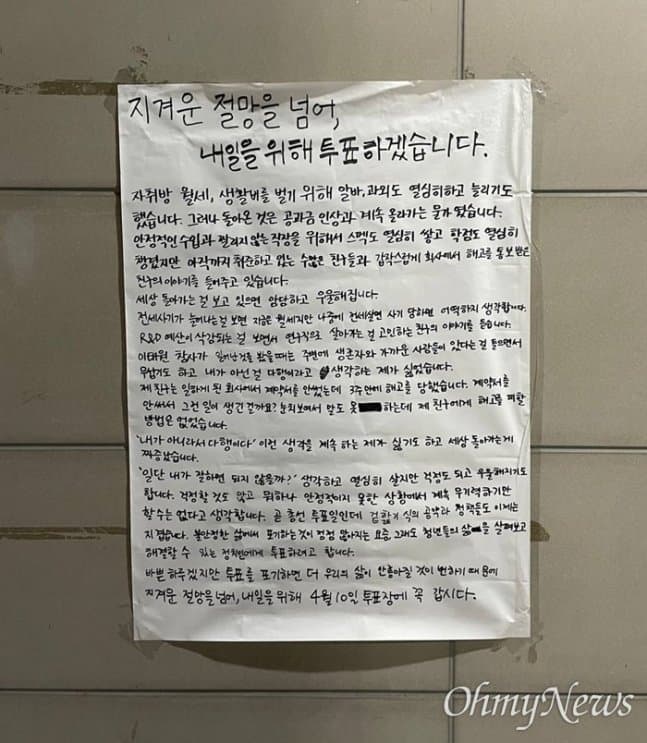 지겨운 절망을 넘어,
내일을 위해 투표하겠습니다.
자취방 월세, 생활비를 벌기 위해 알바, 과외도 열심히하고 늘리기도
했습니다. 그러나 돌아온 것은 공과금 인상과 계속 올라가는 물가 였습니다.
안정적인 수입과 잘리지 않는 직장을 위해서 스펙도 열심히 쌓고 학점도 열심히
챙겼지만 아직까지 취준하고 있는 수많은 친구들과 갑작스럽게 회사에서 해고를 통보받은
친구의 이야기를 들어주고 있습니다.
세상 돌아가는 걸 보고 있으면 암담하고 우울해집니다.
전세사기가 늘어나는 걸 보면 지금은 월세지만 나중에 전세살면 사기 당하면 어떡하지 생각합니다.
R&D 예산이 삭감되는 걸 보면서 연구직으로 살아가는 걸 고민하는 친구의 이야기를 듣습니다.
이태원 참사가 일어난것을 봤을때는 주변에 생존자와 가까운 사람들이 있다는 걸 들으면서
무섭기도 하고 내가 아닌 걸 다행이라고 생각하는 제가 싫었습니다.
제 친구는 일하게 된 회사에서 계약서를 안썼는데 3주만에 해고를 당했습니다. 계약서를
안써서 그런 일이 생긴 걸까요? 눈치보여서 말도 못 하는데 제 친구에게 해고를 피할
방법은 없었습니다.
'내가 아니라서 다행이다' 이런 생각을 계속 하는 제가 싫기도 하고 세상 돌아가는게
짜증났습니다.
'일단 내가 잘하면 되지 않을까?' 생각하고 열심히 살지만 걱정도 되고 우울해지기도
합니다. 걱정할 것도 많고 뭐하나 안정적이지 못한 상황에서 계속 무기력하기만
할수는 없다고 생각합니다. 곧 총선 투표일인데 겉핥기 식의 공약과 정책들도 이제는
지겹습니다. 불안정한 삶에서 포기하는것이 점점 많아지는 요즘 그래도 청년들의 삶을 살펴보고
해결할 수 있는 정치인에게 투표하려고 합니다.
바쁜 하루겠지만 투표를 포기하면 더 우리의 삶이 안좋아질 것이 뻔하기 때문에
지겨운 절망을넘어, 내일을 위해 4월 10일 투표장에 꼭 갑시다.
OhmyNews